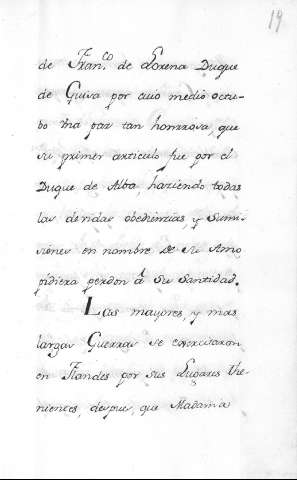 19
de Fran.co de Lorena Duque
de Guisa por cuio medio octu-
bo Vna paz tan honrrosa, que
su primer articulo fue por el
Duque de Alba, haziendo todas
las devidas obediencias y Sumi-
siones en nombre de su Amo
pidiera perdon â Su Santidad.
Las mayores, y mas
largas Guerras se executaron
en Flandes por sus Lugares the-
nientes, despues, que Madama